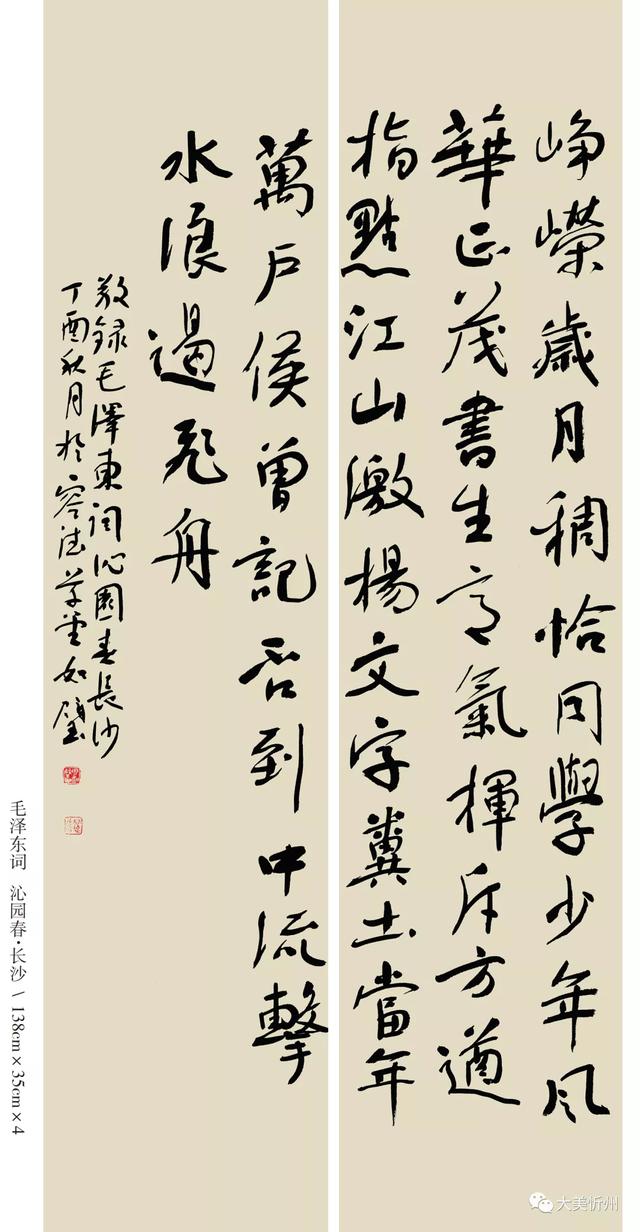 峥嵘歲月稠恰同學少年风
華正茂書生意氣揮斥方遒
指點江山激揚文字糞土當年
萬户侯曾記否到中流擊
水浪遏飞舟
敬録毛澤東词沁園春長沙
丁酉秋月於容德草堂如璧
毛泽东词 沁园春·长沙 \ 138cm×35cm×4
大美忻州